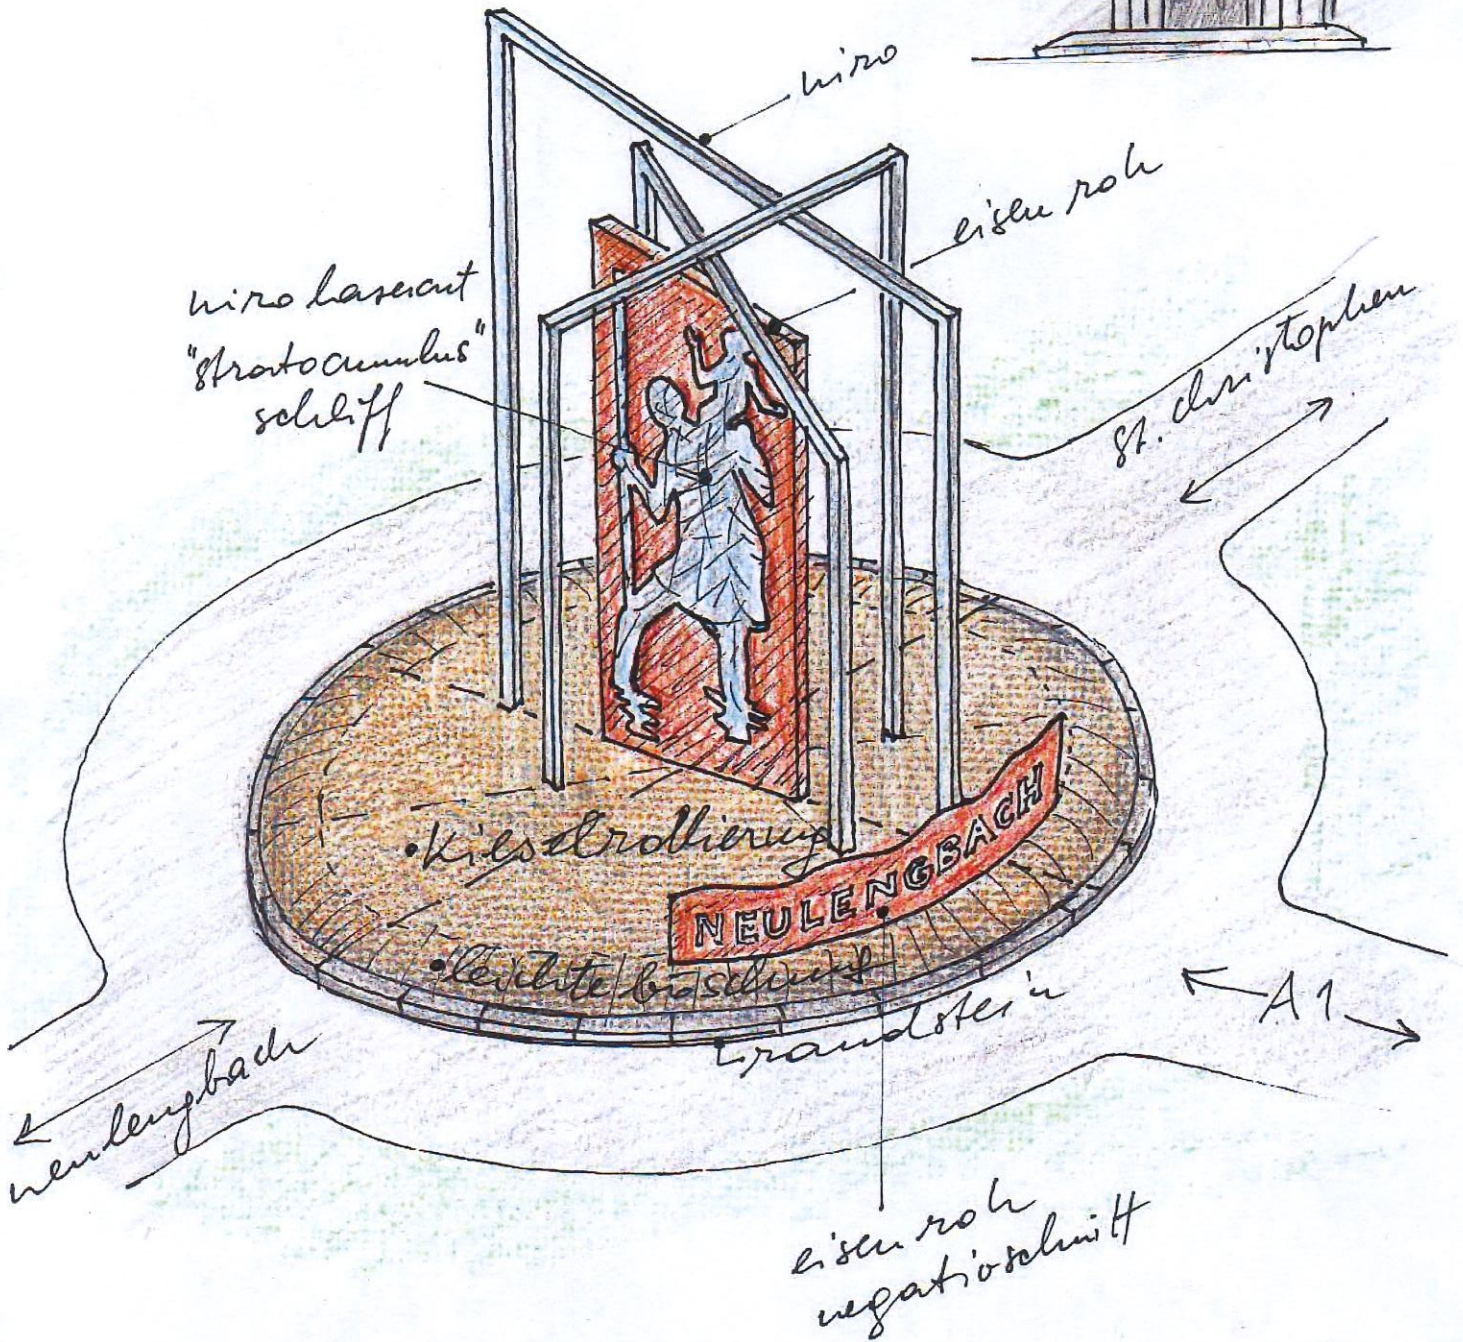 niro
eisen roh
niro lasercut
"stratocumulus"
schliff
st. christophen
• Kies
NEULENGBACH
• leichte böschung
randstein
A1
neulengbach
eisen roh
negativschnitt